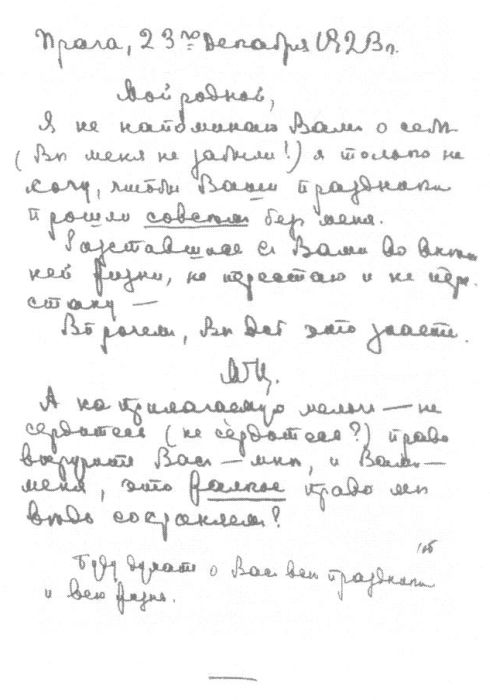 Прага, 23го декабря 1923 г.
Мой родной,
Я не напоминаю Вам о себе
(Вы меня не забыли!) я только не
хочу, чтобы Ваши праздники
прошли совсем без меня.
Расставшись с Вами во внеш-
ней жизни, не перестаю и не пере-
стану —
Впрочем, Вы всё это знаете.
МЦ.
А на прилагаемую мелочь — не
сердитесь (не сердитесь?) право
радовать Вас — мне, и Вам —
меня, это малое право мы
ведь сохраняем?
Буду думать о Вас все праздники
и всю жизнь.